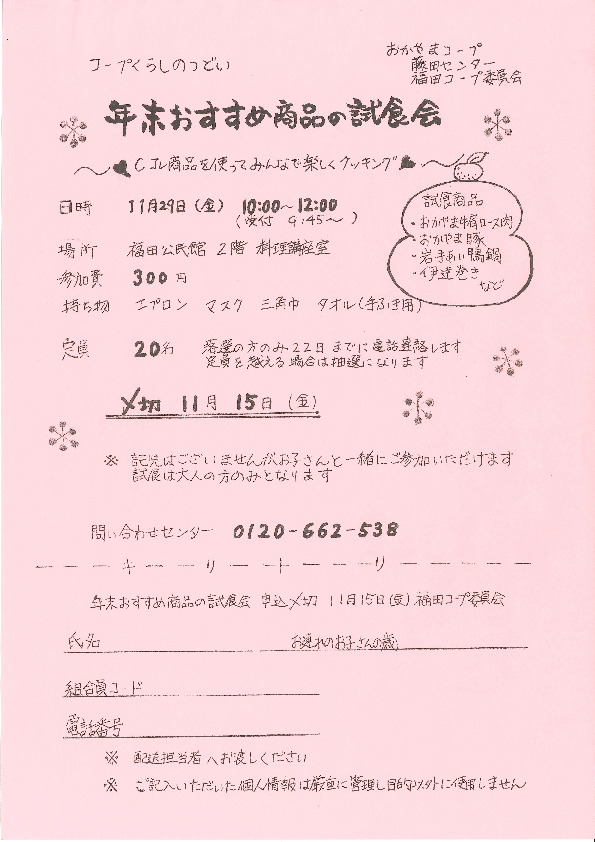 コープくらしのつどい
おかやまコープ
藤田センター
福田コープ委員会
年末おすすめ商品の試食会
COOP商品を使ってみんなで楽しくクッキング
日時 11月29日(金) 10:00〜12:00
(受付 9:45〜)
場所 福田公民館 2階 料理講座室
参加費 300円
持ち物 エプロン マスク 三角巾 タオル(手ふき用)
試食商品
・おかやま牛肩ロース肉
・おかやま豚
・岩手あい鴨鍋
・伊達巻き
など
定員 20名 落選の方のみ22日までに電話連絡します
定員を越える場合は抽選になります
〆切 11月15日(金)
※ 託児はございませんがお子さんと一緒にご参加いただけます
試食は大人の方のみとなります
問い合わせセンター 0120-662-538
キリトリ
年末おすすめ商品の試食会 申込〆切 11月15日(金) 福田コープ委員会
氏名 お連れのお子さんの歳
組合員コード
電話番号
※ 配送担当者へお渡しください
※ ご記入いただいた個人情報は厳重に管理し目的以外に使用しません